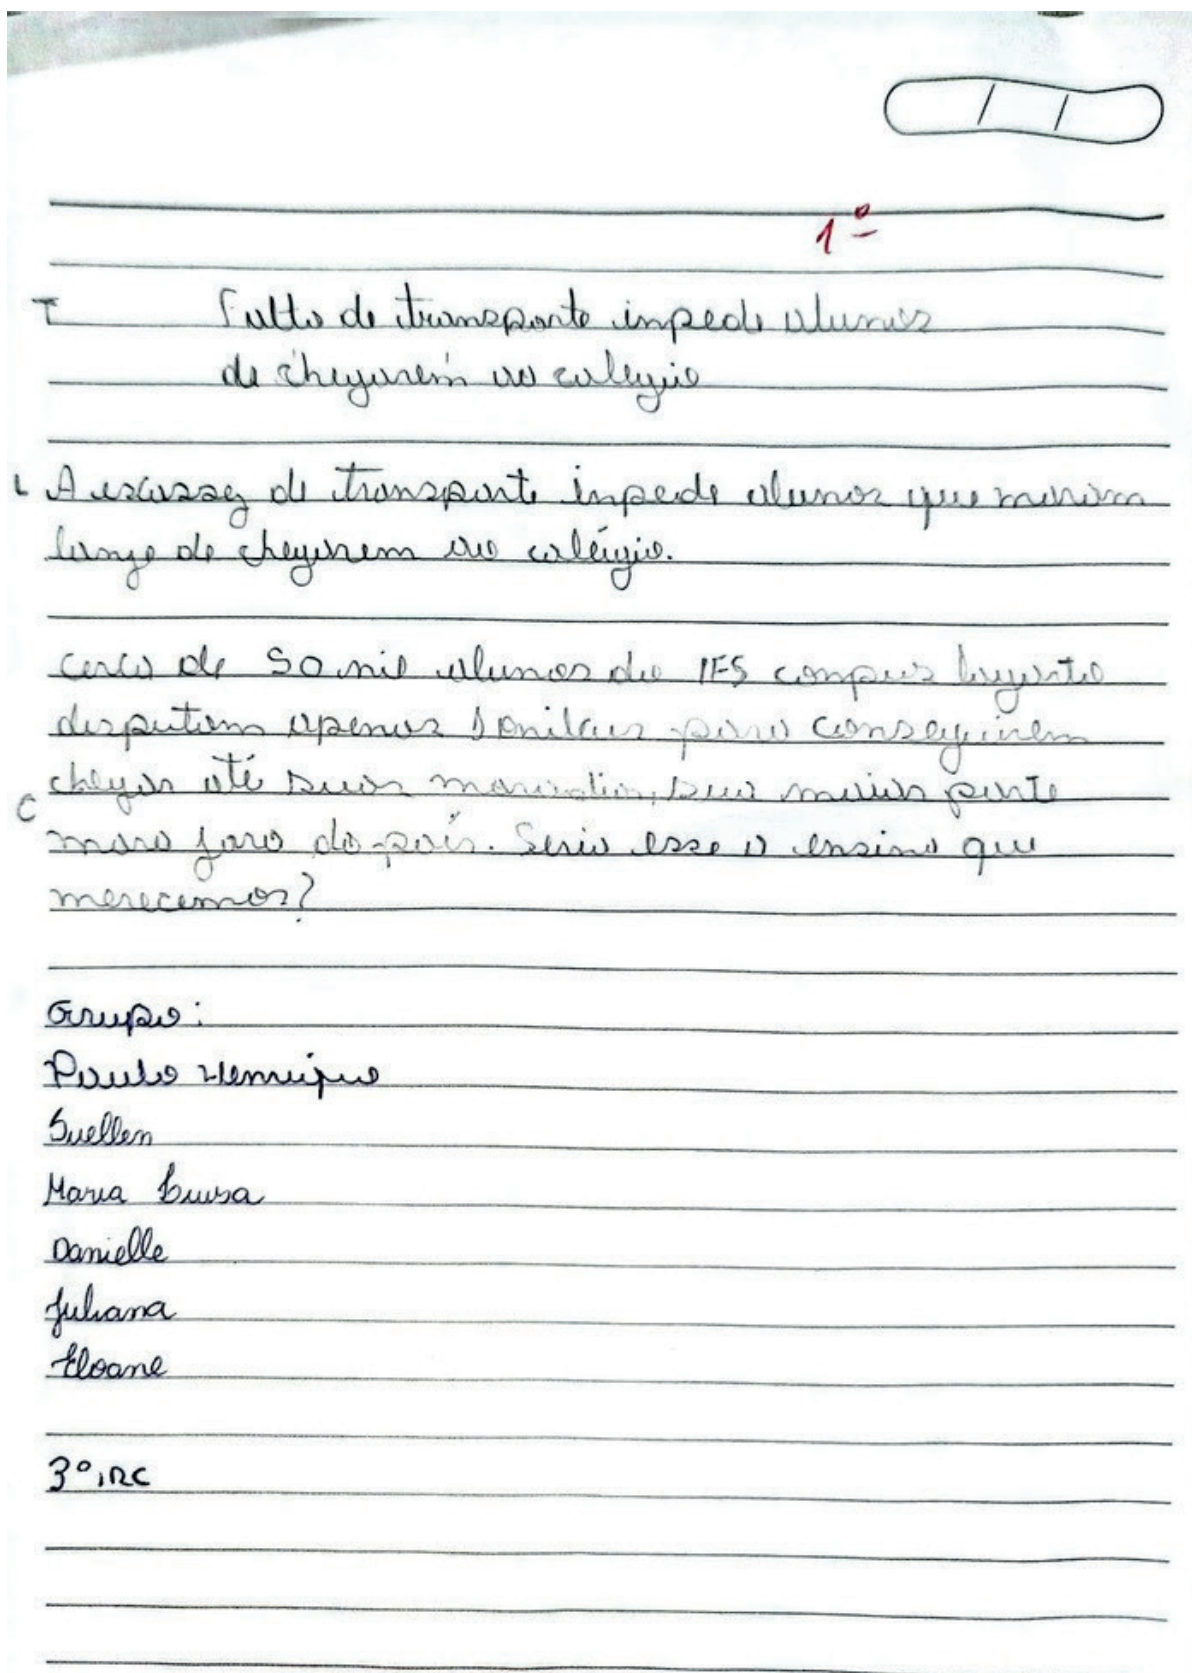 1º
T Falta de transporte inpede alunos
de chegarem ao colegio
L A escassez de transporte inpede alunos que moram
longe de chegarem ao colégio.
cerca de 50 mil alunos do IFS campus lagarto
disputam apenas 1 onibus para conseguirem
chegar até suas moradias, sua maior parte
C
mora fora do país. Seria esse o ensino que
merecemos?
Grupo:
Paulo Henrique
Suellen
Maria Luisa
Danielle
Juliana
Eloane
3º IRC